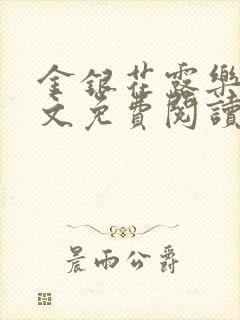 金银花露樂
文免費閱讀
晨雨公爵